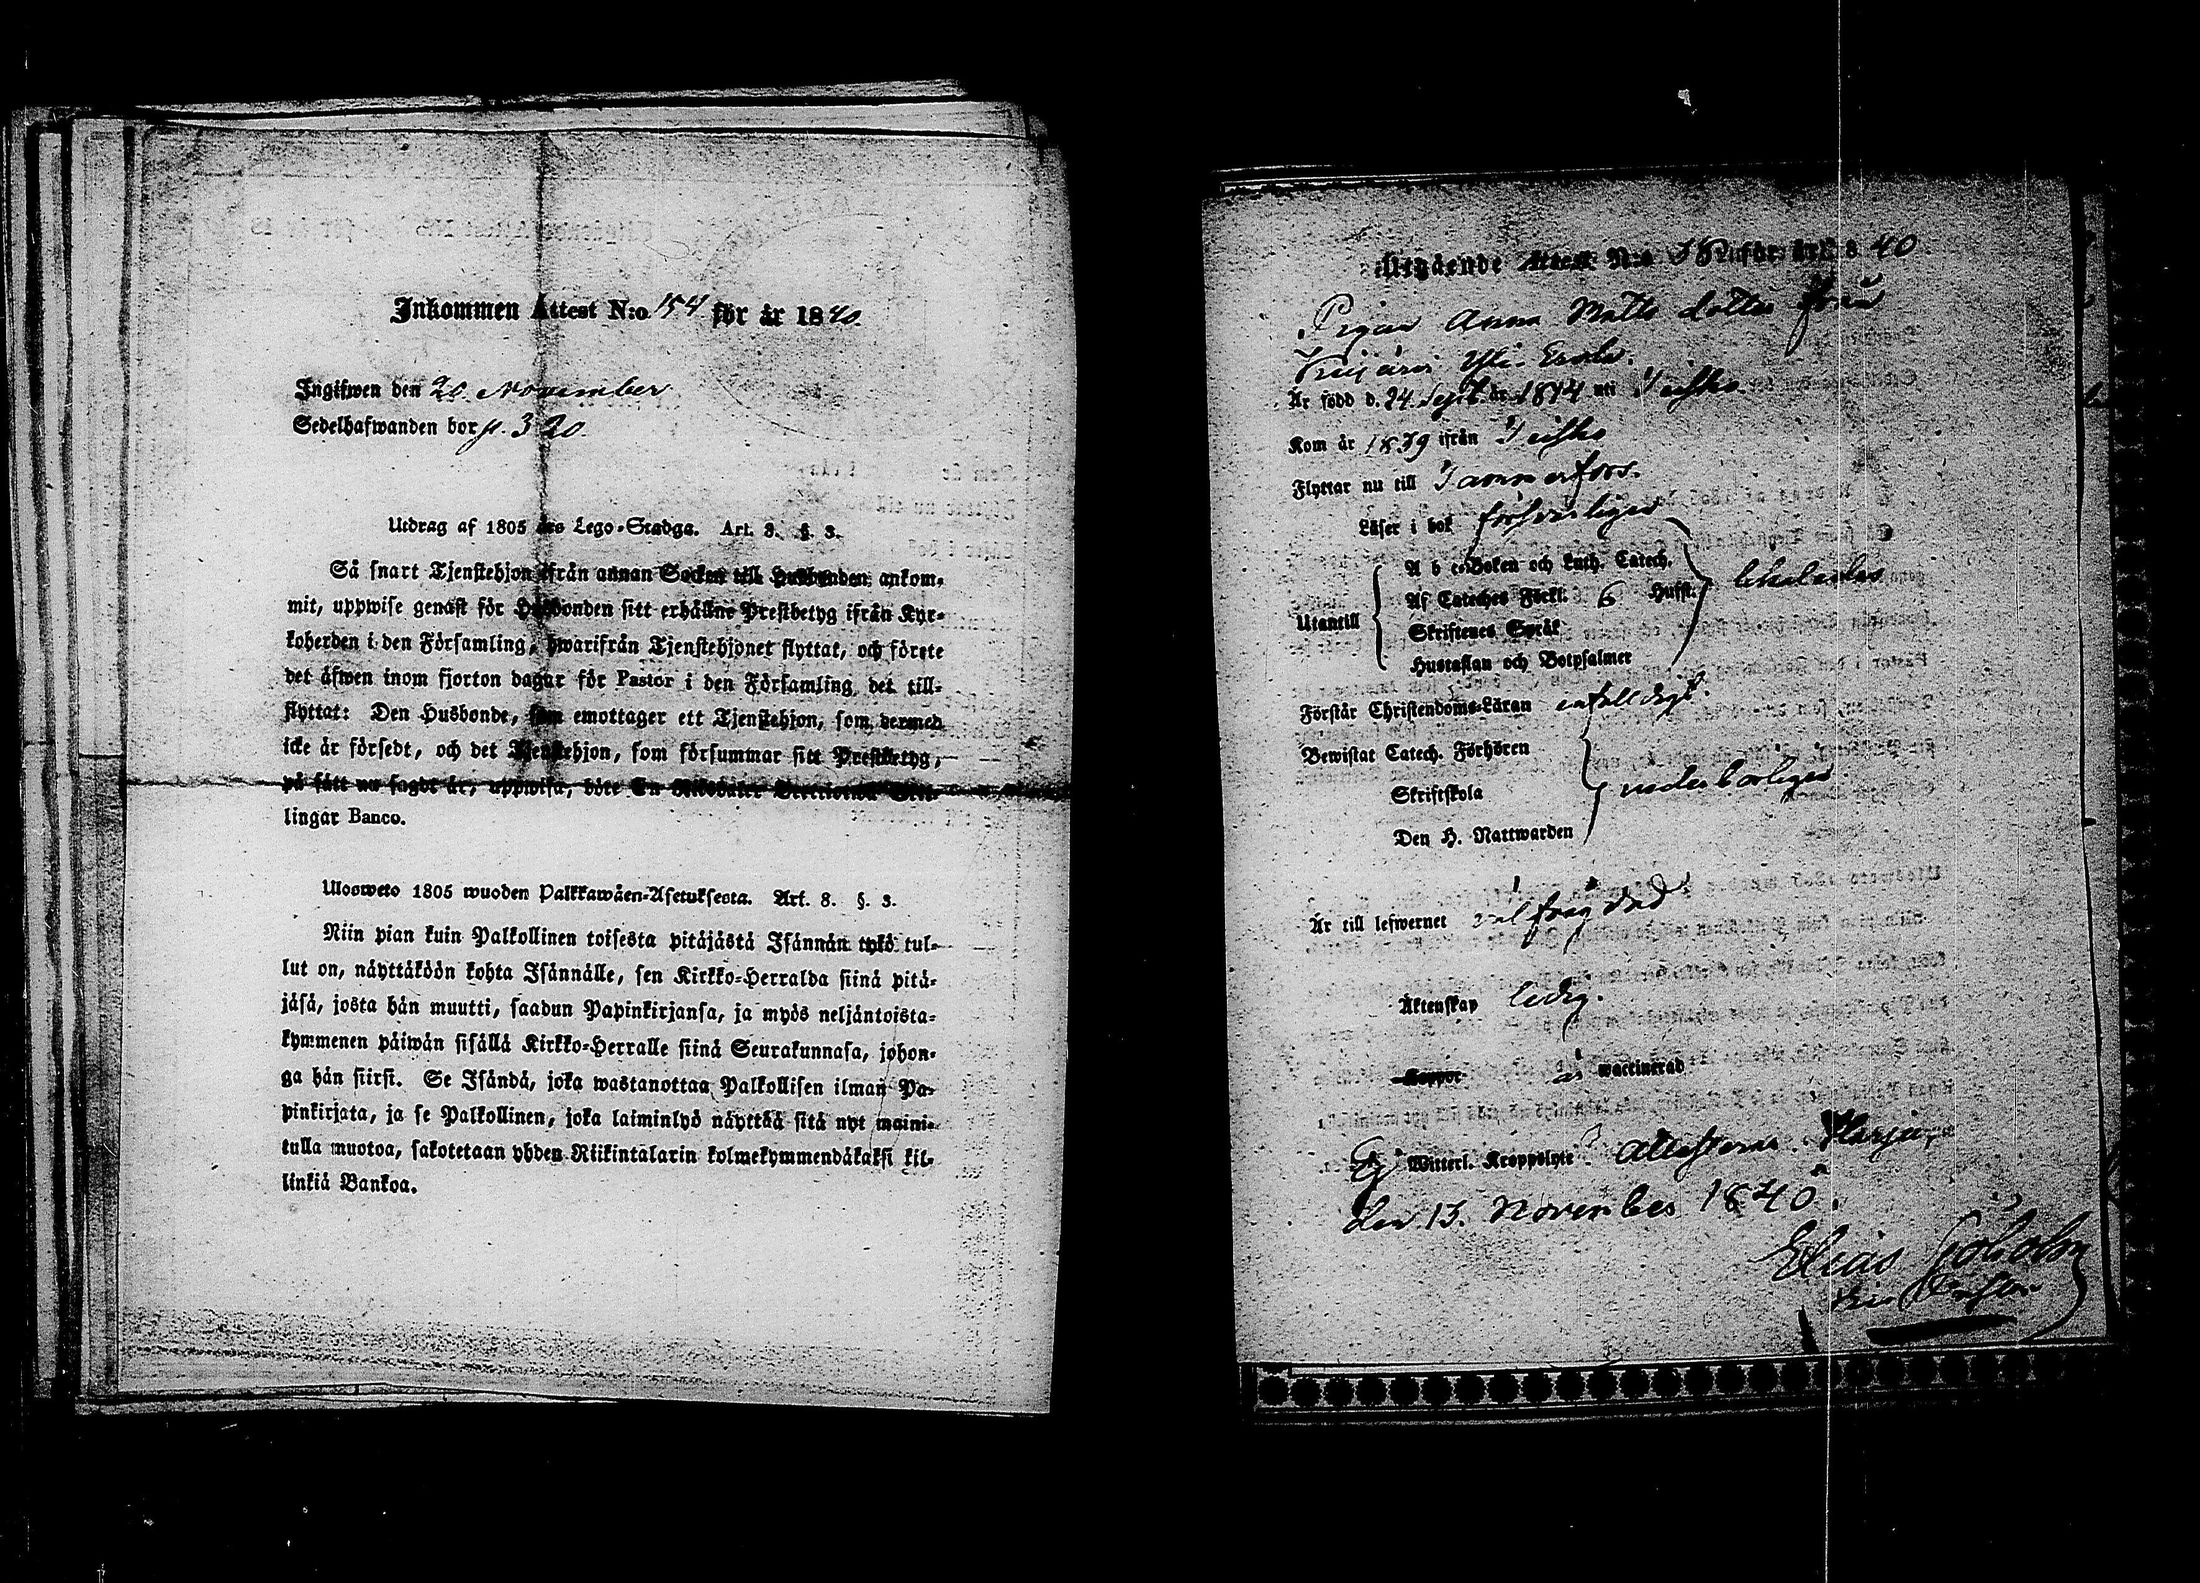 Inkommen Attest N:o 154 för år 1840.
Ingifwen den 20 November
Sedelhafwanden bor p. 320.
Utdrag af 1805 års Lego-Stadga. Art. 8. §. 3.
Så snart Tjenstehjon ifrån annan Socken till Husbonden ankom-
mit, uppwise genast för Husbonden sitt erhållne Prestbetyg ifrån Kyr-
koherden i den Församling, hwarifrån Tjenstehjonet flyttat, och förete
det äfwen inom fjorton dagar för Pastor i den Församling det till-
flyttat: Den Husbonde, som emottager ett Tjenstehjon, som dermed
icke är försedt, och det Tjenstehjon, som försummar sitt Prestbetyg,
på sätt nu sagdt är, uppwisa, böte En Riksdaler
lingar Banco.
Ulosweto 1805 wuoden Palkkawäen-Asetuksesta. Art. 8. §. 3.
Niin pian kuin Palkollinen toisesta pitäjästä Isännän tykö tul-
lut on, näyttäköön kohta Isännälle, sen Kirkko-Herralda siinä pitä-
jäsä, josta hän muutti, saadun Papinkirjansa, ja myös neljäntoista-
kymmenen päiwän sisällä Kirkko-Herralle siinä Seurakunnasa, johon-
ga hän siirsi. Se Isändä, joka wastanottaa Palkollisen ilman Pa-
pinkirjata, ja se Palkollinen, joka laiminlyö näyttää sitä nyt maini-
tulla muotoa, sakotetaan yhden Riikintalarin kolmekymmendäkaksi kil-
linkiä Bankoa.
Utgående Attest N:o för år 1840
Pigan Anna Matts dotter från
Är född d. 24 Sept. år 1814 uti Teisko.
Kom år 1839 ifrån Teisko
Flyttar nu till Tammerfors.
Läser i bok försvarligen
A b c-Boken och Luth. Catech.
Af Cateches Förkl. 6 Husst.
Utantill
Skriftenes Språk
Hustaflan och Botpsalmer
Förstår Christendoms-Läran enfalldigt.
Bewistat Catech. Förhören
Skriftskola
vederbörligen.
Den H. Nattwarden
Är till lefwernet välfrägdad
Äktenskap ledig.
Koppor är waccinerad
Ej Witterl. Kroppslyte. Attesterar. Harju,
den 13. November 1840.
Elias